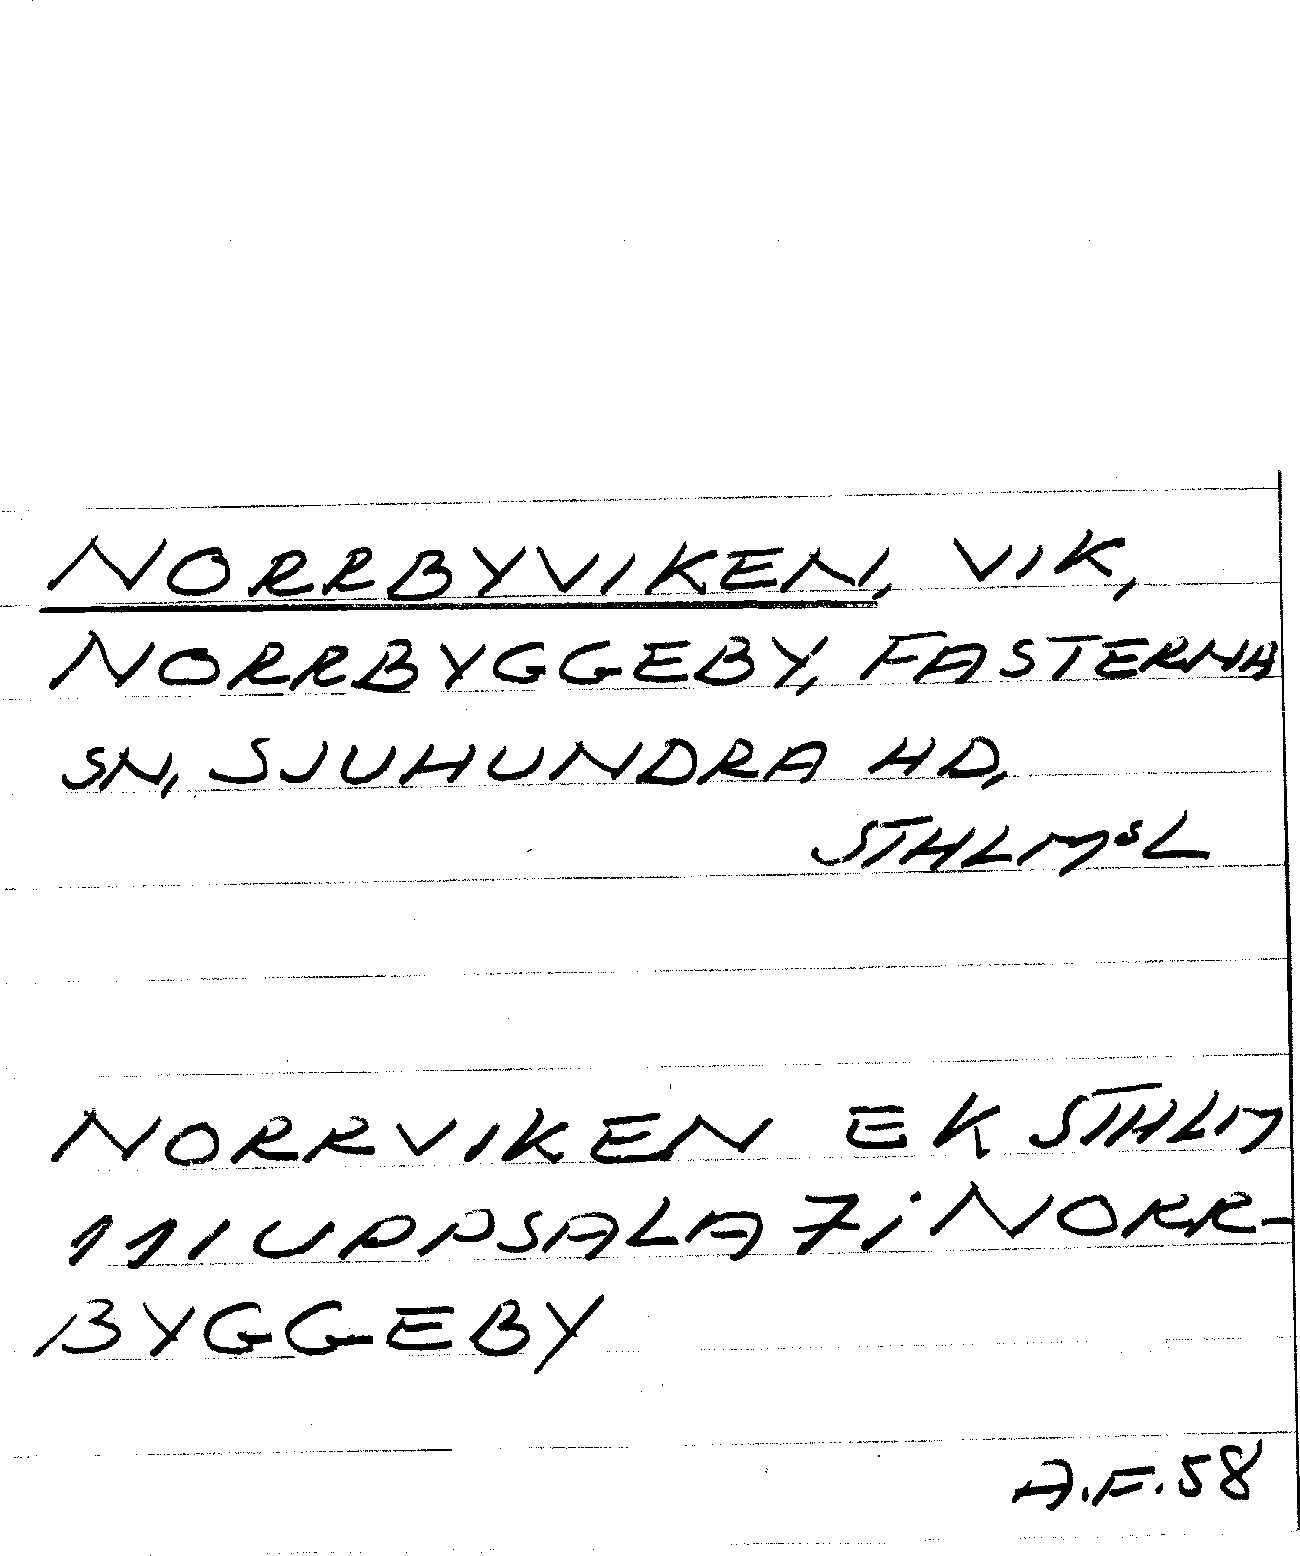 NORRBYVIKEN, VIK,
NORRBYGGEBY, FASTERNA
SN, SJUHUNDRA HD,
STHLMSL
NORRVIKEN EK STHLM
111 UPPSALA 7 i NORR-
BYGGEBY
A.F.58